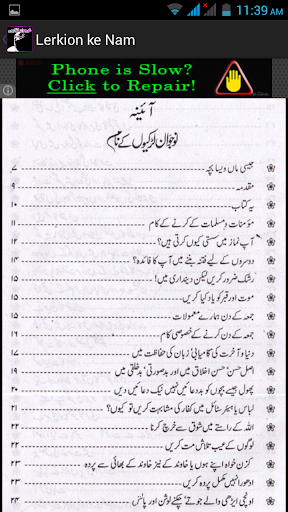 11:39 AM
Lerkion ke Nam
Phone is Slow?
Click to Repair!
آئینہ
نوجوان لڑکیوں کے نام
جیسی ماں ویسا بچہ ۷
مقدمہ ۹
یہ کتاب ۱۰
مؤمنات و مسلمات کے کرنے کے کام ۱۱
آپ نماز میں سستی کیوں کرتی ہیں؟ ۱۲
دوسروں کے لیے فتنہ بننے میں آپ کا فائدہ؟
رشک ضرور کریں لیکن دینداری میں!
موت اور قبر کو یاد کیا کریں
جمعہ کے دن ہمارے معمولات ۱۵
جمعہ کے دن کرنے کے خصوصی کام
دنیا و آخرت کی کامیابی زبان کی حفاظت میں
اصل حسن' حسن اخلاق میں اور بدصورتی' بدخلقی میں
پھول جیسے بچوں کو بددعائیں نہیں نیک دعائیں دیں ۲۰
لباس یا ہیئر سٹائل میں کفار کی مشابہت کریں تو' کیوں؟ ۲۱
اللہ کے راستے میں شوق سے خرچ کرنا
لوگوں کے عیب تلاش مت کریں ۲۲
کزن خواہ اپنے ہوں یا خاوند کے نیز خاوند کے بھائی سے پردہ ۲۳
ادھورا نہیں مکمل پردہ کریں
اونچی ایڑھی والے جوتے' چکنے لوشن اور پالش ۲۴